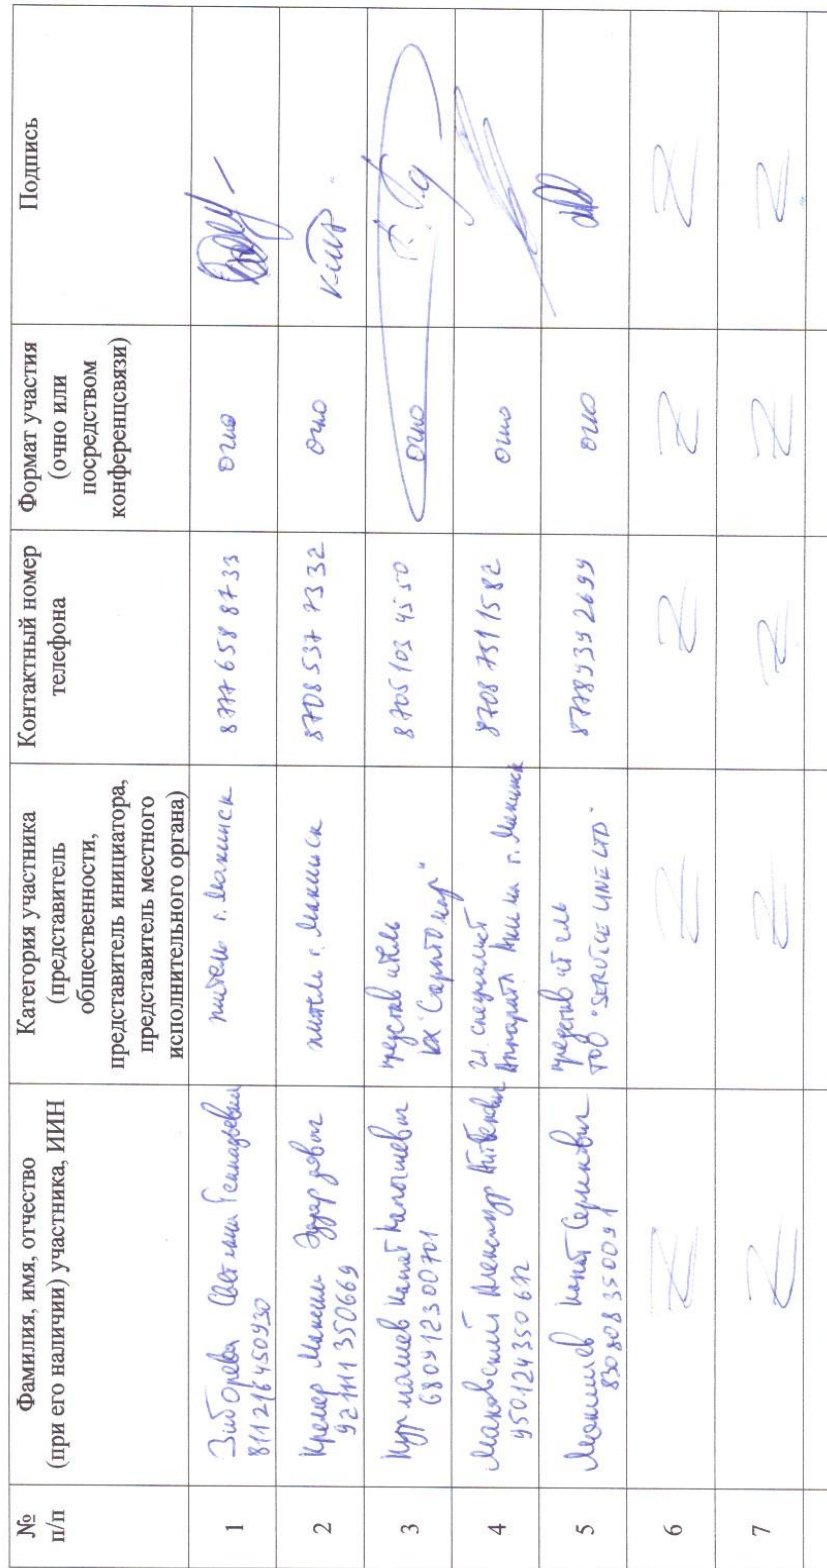 №
п/п
Фамилия, имя, отчество
(при его наличии) участника, ИИН
Категория участника
(представитель
общественности,
представитель инициатора,
представитель местного
исполнительного органа)
Контактный номер
телефона
Формат участия
(очно или
посредством
конференцсвязи)
Подпись
1
Светлана Геннадьевна
811216450930
житель г. Макинск
8777 658 8733
очно
2
Кремер Максим Эдуардович
921111350669
житель г. Макинск
8708 537 7332
очно
3
Канат
680912300701
представитель
8705 103 4550
очно
4
Маковский Александр
950124350672
гл. специалист
Аппарата Акима г. Макинск
8708 751 1582
очно
5
Канат Серикович
830808350091
представитель
ТОО "SERVICE LINE LTD"
8778 939 2699
очно
6
Z
Z
Z
Z
Z
7
Z
Z
Z
Z
Z